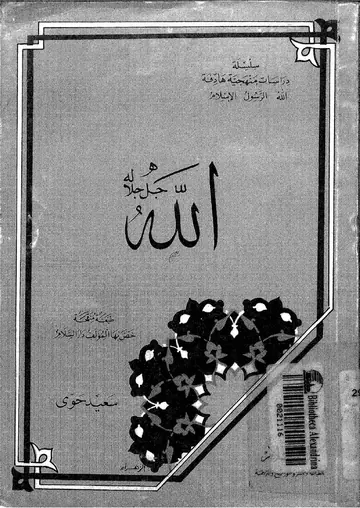 سلسلة
دراسات منهجية هادفة
الله الرسول الإسلام
الله جل جلاله
طبعة منقحة
خص بها المؤلف دار السلام
سعيد حوى
Bibliotheca Alexandrina
0021116